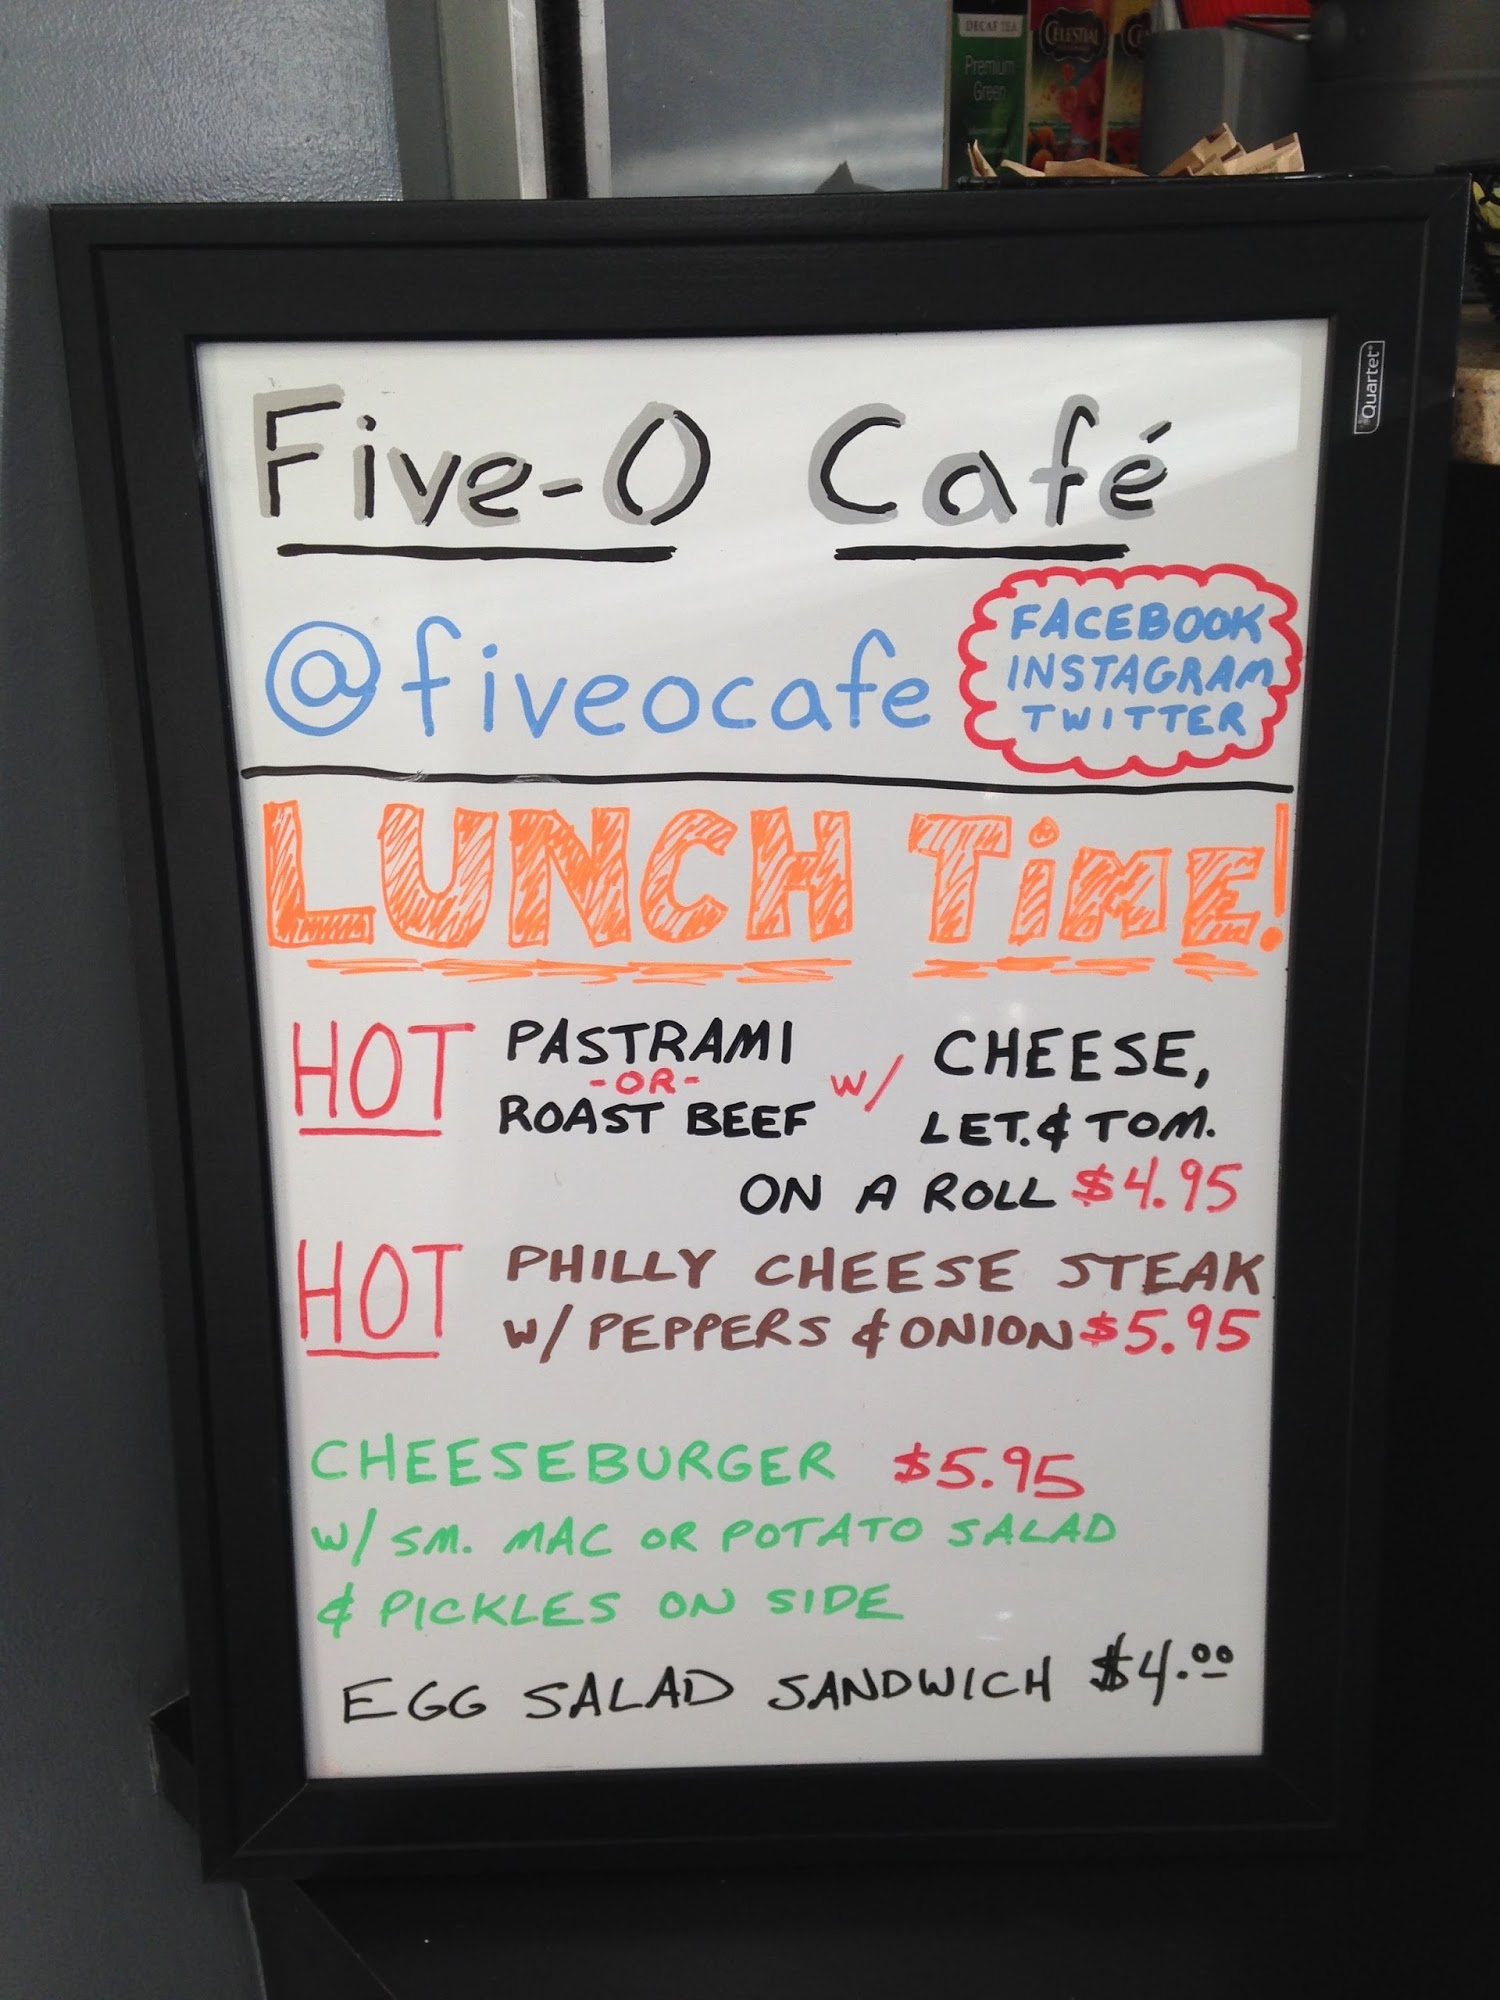 DECAF TEA
Premium
Green
CELESTIAL
Quartet
Five-O Café
@fiveocafe
FACEBOOK
INSTAGRAM
TWITTER
LUNCH TiME!
HOT PASTRAMI -OR- ROAST BEEF w/ CHEESE,
LET. & TOM.
ON A ROLL $4.95
HOT PHILLY CHEESE STEAK
w/ PEPPERS & ONION $5.95
CHEESEBURGER $5.95
w/ SM. MAC OR POTATO SALAD
& PICKLES ON SIDE
EGG SALAD SANDWICH $4.00